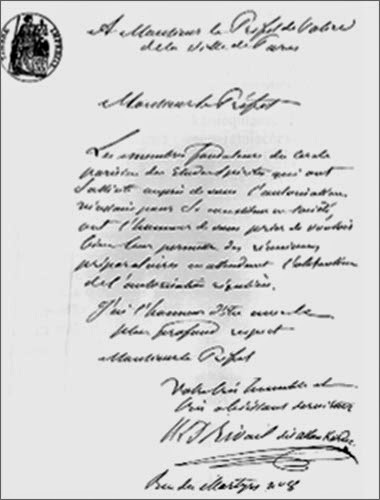 A Monsieur le Préfet de Police
de la ville de Paris
Monsieur le Préfet
Les membres fondateurs du Cercle
parisien des Etudes spirites qui ont
sollicité auprès de vous l'autorisation
nécessaire pour se constituer en Société,
ont l'honneur de vous prier de vouloir
bien leur permettre des réunions
préparatoires en attendant l'obtention
de l'autorisation régulière.
J'ai l'honneur d'être avec le
plus profond respect
Monsieur le Préfet
Votre très humble et
très obéissant serviteur
H L D Rivail dit Allan Kardec
Rue des Martyrs n° 8